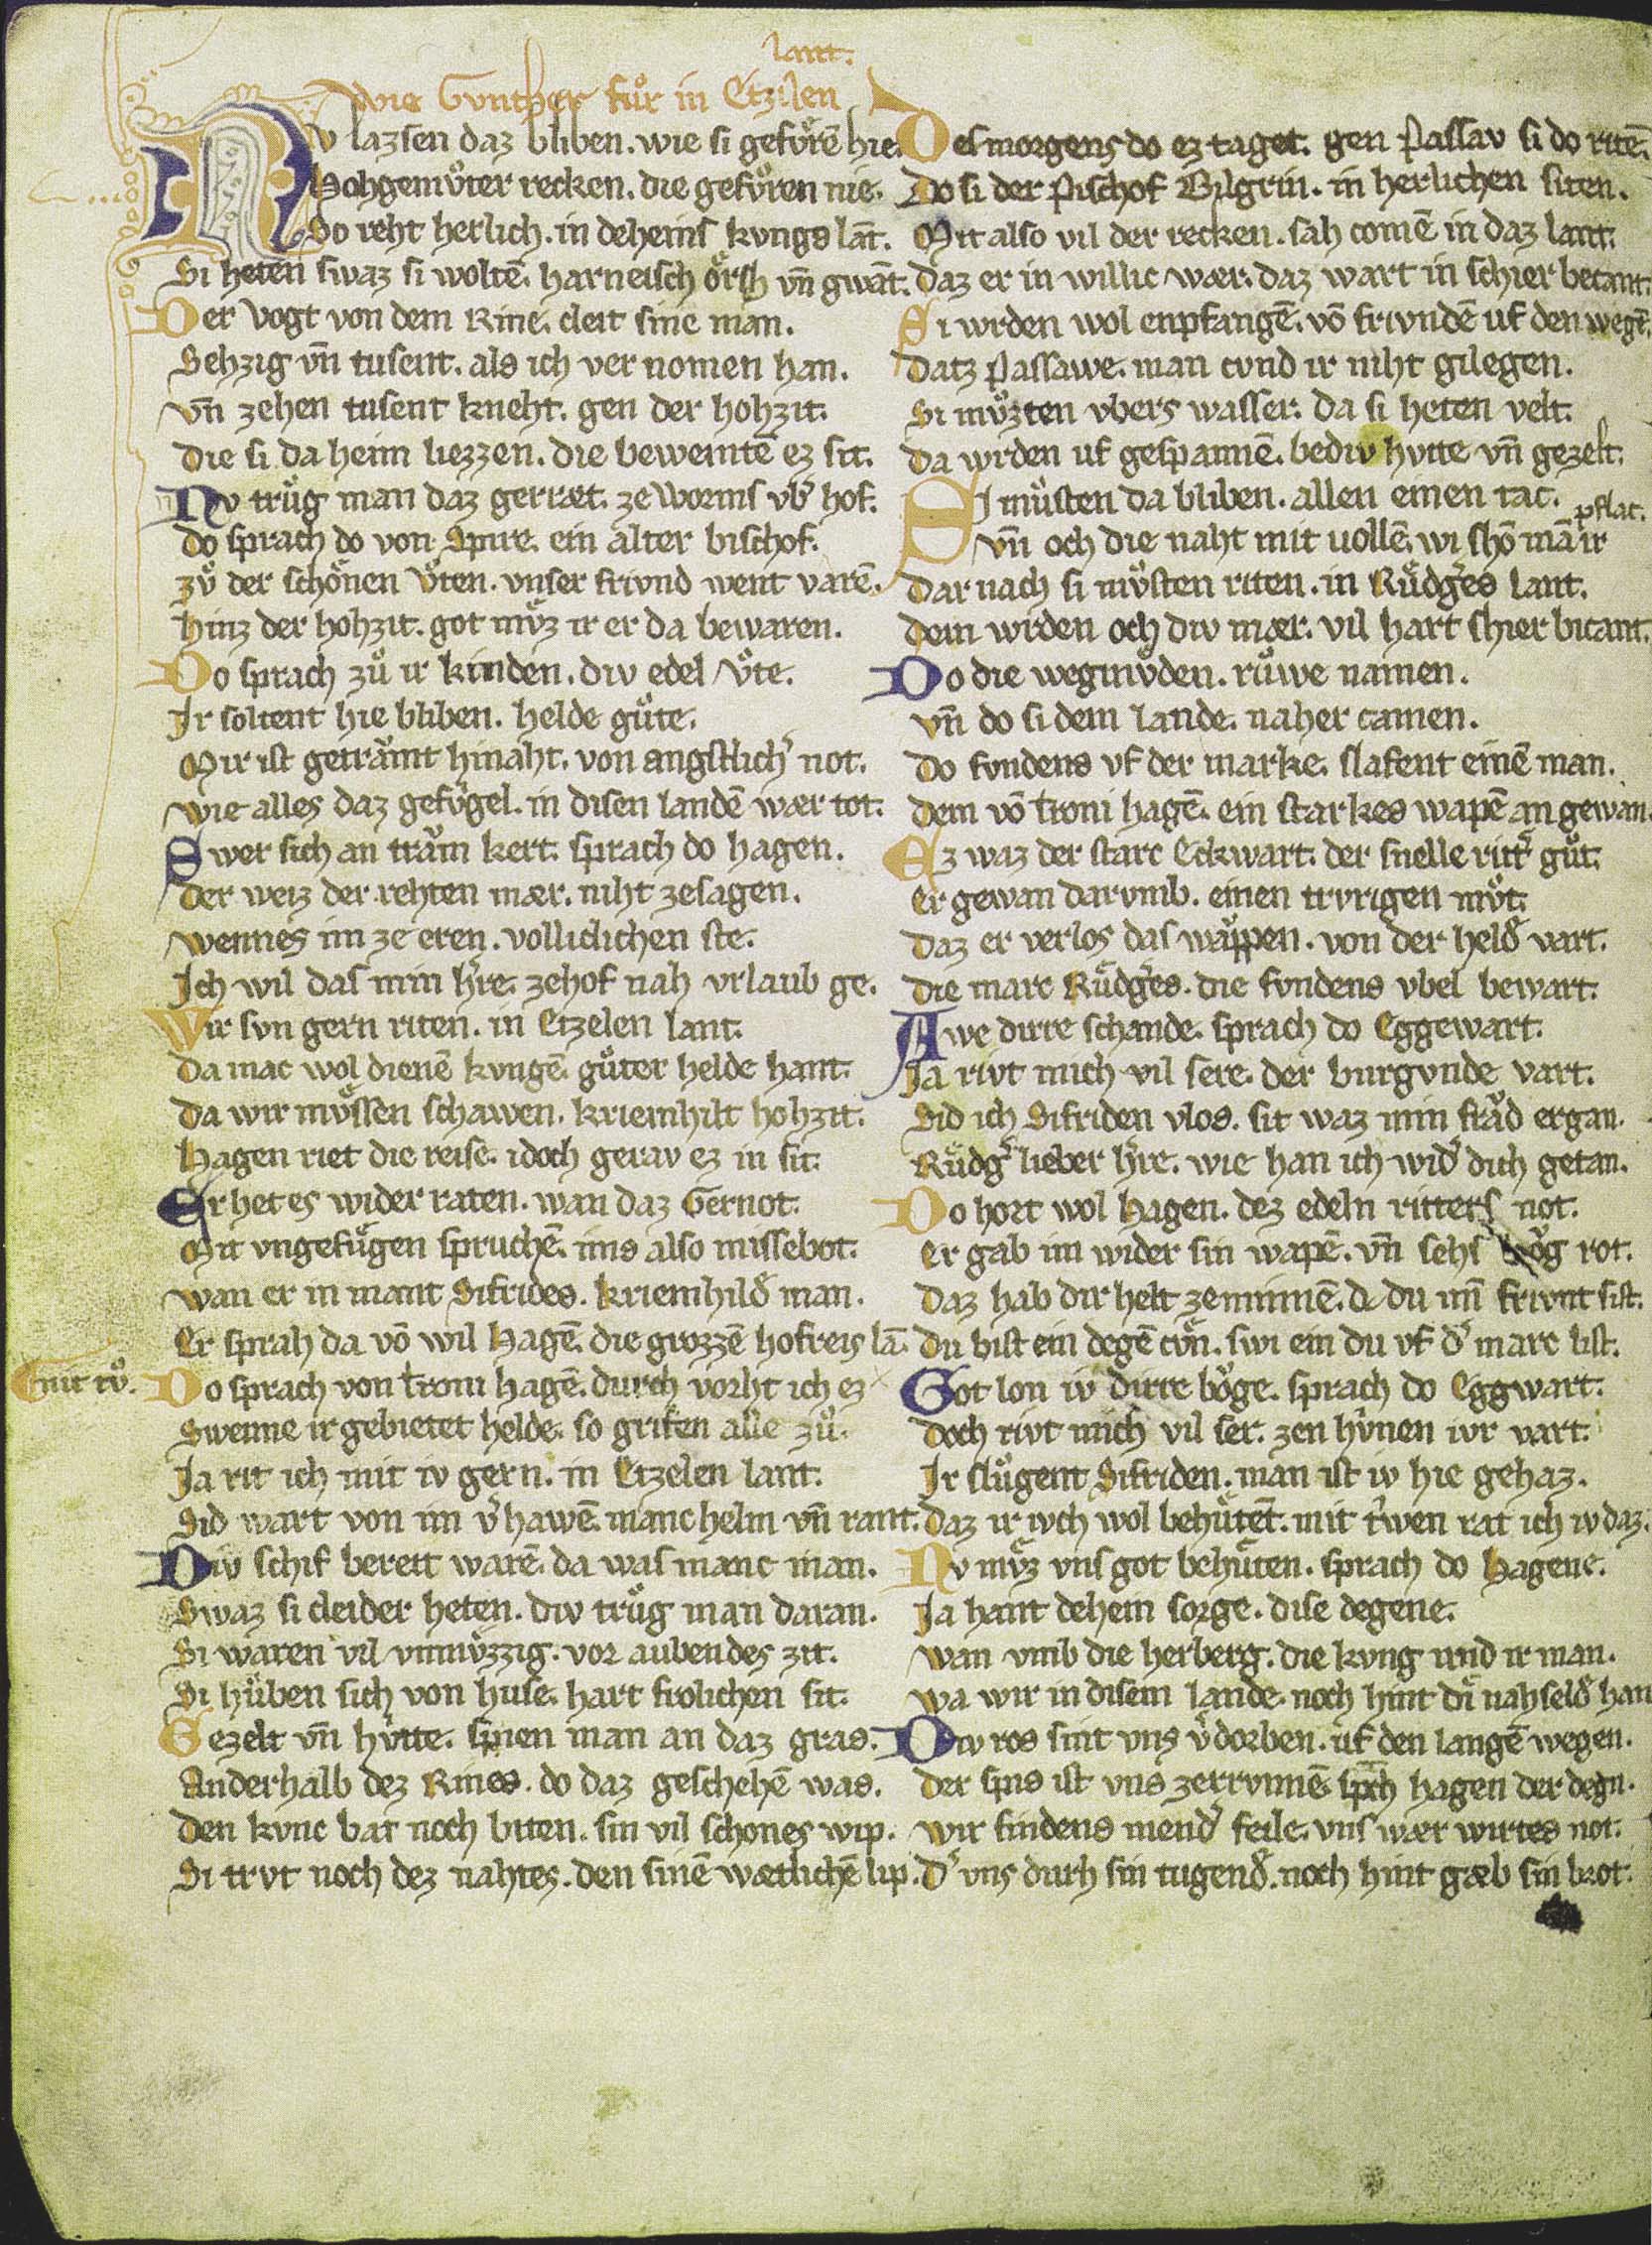 lant.
wie Gvnther fuͦr in Etzelen
Nv lazsen daz bliben. wie si gefvͦrē hie.
Hohgemvͦter recken. die gefvͦren nie.
So reht herlich. in deheins kvngs lāt.
Si heten swaz si woltē. harneisch oͤrsh vn̄ gwāt.
Der Vogt von dem Rine. cleit sine man.
Sehzig vn̄ tusent. als ich ver nomen han.
vn̄ zehen tusent kneht. gen der hohzit.
Die si da heim liezzen. die beweintē ez sit.
Nv truͦg man daz geræt. ze Worms vb̓ hof.
do sprach do von Spire. ein alter bischof.
zvͦ der schoͤnen vͦten. vnser frivnd went varē.
hinz der hohzit. got mvͤz ir er da bewaren.
Do sprach zuͦ ir kinden. div edel vͦte.
Ir soltent hie bliben. helde guͦte.
Mir ist getraͮmt hinaht. von angstlich̓ not.
wie alles daz gefvͤgel. in disen landē wær tot.
Swer sich an traͮm kert. sprach do hagen.
der weiz der rehten mær. niht zesagen.
wennes im ze eren. volliclichen ste.
Ich wil das min h̓re. zehof nah vrlaub ge.
Wir svn gern riten. in Etzelen lant.
Da mac wol dienē kvngē. guͦter helde hant.
Da wir mvͤssen schawen. kriemhilt hohzit.
Hagen riet die reise. idoch gerav ez in sit.
Er het es wider raten. wan daz Gernot.
Mit vngefuͤgen spruchē. ims also missebot.
wan er in mant Sifrides. kriemhild̓ man.
Er sprah da vō wil Hagē. die grozzē hofreis lā.
Do sprach von troni hagē. durch vorht ich ez
nit tvͦ.
Swenne ir gebietet helde. so grifen alle zuͦ.
Ja rit ich mit iv gern. in Etzelen lant.
Sid wart von im v̓hawē. manc helm vn̄ rant.
Div schif bereit warē. da was manc man.
Swaz si cleider heten. div truͦg man daran.
Si waren vil vnmvͤzzig. vor aubendes zit.
Si huͦben sich von huse. hart frolichen sit.
Gezelt vn̄ hvtte. spien man an daz gras.
Anderhalb dez Rines. do daz geschehē was.
den kvnc bat noch biten. sin vil schones wip.
Si trvt noch dez nahtes. den sinē wætlichē lip.
Des morgens do ez taget. gen Passav si do ritē.
Do si der Pischof Bilgrin. in herlichen siten.
Mit also vil der recken. sah comē in daz lant.
daz er in willic wær. daz wart in schier becant.
Si wrden wol enpfangē. vō frivndē uf den wegē.
datz Passawe. man cvnd ir niht gilegen.
Si mvͦzten vbers wasser. da si heten velt.
da wrden uf gespannē. bediv hvtte vn̄ gezelt.
Si muͦsten da bliben. allen einen tac.
vn̄ och die naht mit uollē. wi shō mā ir
pflac.
Dar nach si mvͦsten riten. in Ruͤdg̓es lant.
dem wrden och div mær. vil hart shier bicant.
Do die wegmvͤden. ruͦwe namen.
vn̄ do si dem lande. naher camen.
do fvndens vf der marke. slafent einē man.
dem vō troni hagē. ein starkes wapē an gewan.
Ez waz der starc Eckwart. der snelle ritt̓ guͦt.
er gewan darvmb. einen trvrigen mvͦt.
daz er verlos das waͮppen. von der held̓ vart.
die marc Ruͤdg̓es. die fvndens vbel bewart.
Awe dirre schande. sprach do Eggewart.
Ja rivt mich vil sere. der burgvnde vart.
Sid ich Sifriden vlos. sit waz min fraͮd ergan.
Ruͤdg̓ lieber h̓re. wie han ich wid̓ dich getan.
Do hort wol Hagen. dez edeln ritters not.
er gab im wider sin wapē. vn̄ sehs boͮg rot.
daz hab dir helt ze minnē. dc du min̄ frivnt sist.
du bist ein degē cvͤn. swi ein du vf d̓ marc list.
Got lon iv dirre boͮge. sprach do Eggwart.
doch rivt mich vil ser. zen hvnen ivr vart.
Ir sluͦgent Sifriden. man ist iv hie gehaz.
daz ir ivch wol behuͤtet. mit t̓wen rat ich iv daz.
Nv mvͤz vns got behuͤten. sprach do Hagene.
Ja hant dehein sorge. dise degene.
wan vmb die herberg. die kvng vnd ir man.
wa wir in disem lande. noch hint di nahseld̓ han
Div ros sint vns v̓dorben. uf den langē wegen.
der spis ist vns zerrvnnē. sprch hagen der degn.
wir findens niend̓ feile. vns wær wirtes not.
D̓ vns durh sin tugend̓. noch hint gæb sin brot.